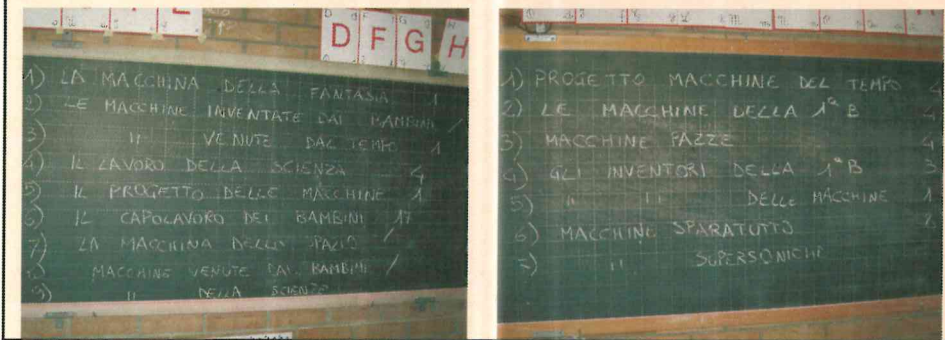 D F G H
1) LA MACCHINA DELLA FANTASIA 1
2) LE MACCHINE INVENTATE DAI BAMBINI /
3) " VENUTE DAL TEMPO 1
4) IL LAVORO DELLA SCIENZA 4
5) IL PROGETTO DELLE MACCHINE 1
6) IL CAPOLAVORO DEI BAMBINI 17
7) LA MACCHINA DELLO SPAZIO /
8) MACCHINE VENUTE DAI BAMBINI /
9) " DELLA SCIENZA
1) PROGETTO MACCHINE DEL TEMPO
2) LE MACCHINE DELLA 1ª B
3) MACCHINE PAZZE
4) GLI INVENTORI DELLA 1ª B 3
5) " " DELLE MACCHINE 1
6) MACCHINE SPARATUTTO
7) " SUPERSONICHE